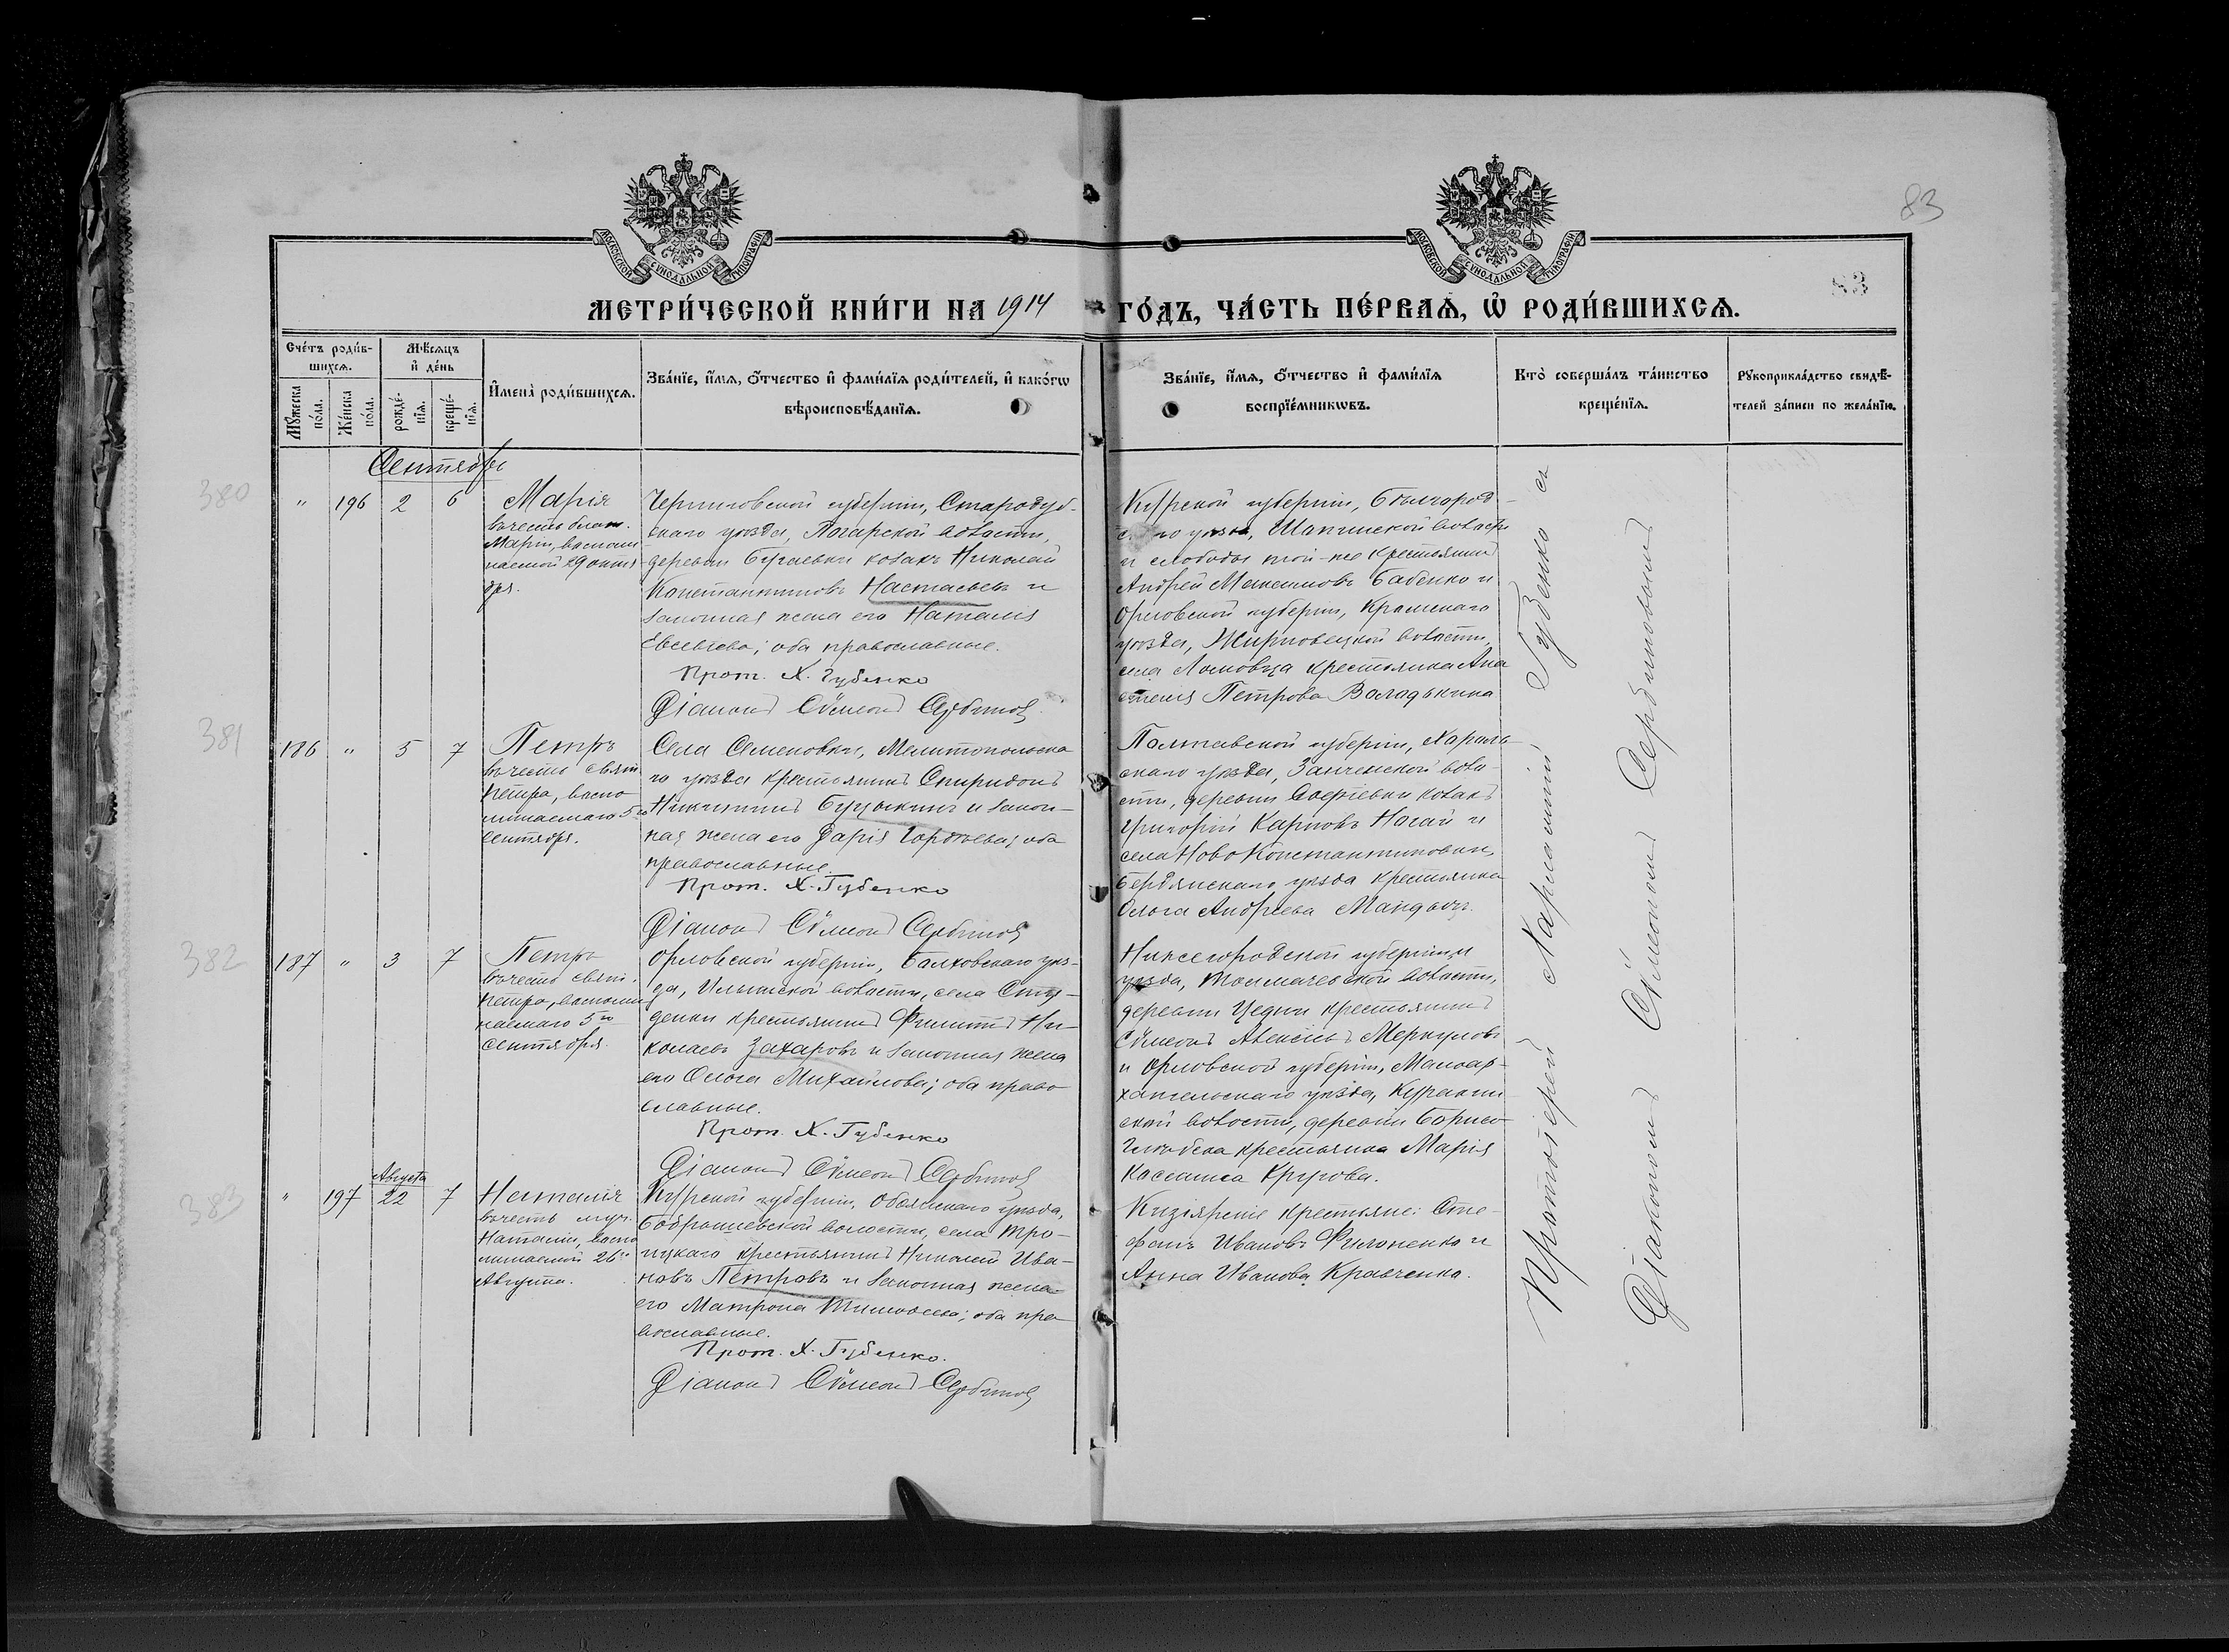 83
83
МОСКОВСКОЙ СѴНОДАЛЬНОЙ ТИПОГРАФІИ
МОСКОВСКОЙ СѴНОДАЛЬНОЙ ТИПОГРАФІИ
МЕТРИ́ЧЕСКОЙ КНИ́ГИ НА 1914 ГО́ДЪ, ЧА́СТЬ ПЕ́РВАѦ, Ѡ҆ РОДИ́ВШИХСѦ.
Сче́тъ роди́в-
шихсѧ.
Мꙋ́жеска
по́ла.
Же́нска
по́ла.
Мѣ́сѧцъ
и҆ де́нь
рожде́-
нїѧ.
креще́-
нїѧ.
И҆мена̀ роди́вшихсѧ.
Зва́нїе, и҆́мѧ, ѻ҆́тчество и҆ фами́лїѧ роди́телей, и҆ како́гѡ
вѣроисповѣ́данїѧ.
Зва́нїе, и҆́мѧ, ѻ҆́тчество и҆ фами́лїѧ
воспрїе́мникѡвъ.
Кто̀ соверша́лъ та́инство
креще́нїѧ.
Рꙋкоприкла́дство свидѣ́-
телей за́писи по жела́нїю.
Сентябрь
380
" 196 2 6
Марія
въ честь
Маріи, воспоми
наемой 29 октя
бря.
Черниговской губерніи, Стародуб-
скаго уѣзда, Погарской волости,
деревни козакъ Николай
Константиновъ Настасьевъ и
законная жена его Наталія
Евсѣева; оба православные.
Прот. Х. Губенко
Діаконъ Сѵмеонъ Сербиновъ
Курской губерніи, Бѣлгород-
скаго уѣзда, волости
и слободы той-же крестьянинъ
Андрей Максимовъ Бабенко и
Орловской губерніи, Кромскаго
уѣзда, волости,
села крестьянка Ана
стасія Петрова Володькина
381
186 " 5 7
Петръ
въ честь свят.
Петра, воспо
минаемаго 5го
Сентября.
Села Семеновки, Мелитопольска
го уѣзда крестьянинъ Спиридонъ
Никитинъ и закон-
ная жена его Дарія Гордѣева; оба
православные.
Прот. Х. Губенко
Діаконъ Сѵмеонъ Сербиновъ
Полтавской губерніи, Хороль
скаго уѣзда, воло-
сти, деревни козакъ
Григорій Карповъ Ногай и
села Ново Константиновки,
Бердянскаго уѣзда крестьянка
Ольга Андреева
382
187 " 3 7
Петръ
въ честь свят.
Петра, воспоми
наемаго 5го
Сентября.
Орловской губерніи, Болховскаго уѣз-
да, Ильинской волости, села Сту-
денки крестьянинъ Филиппъ Ни-
колаевъ Захаровъ и законная жена
его Ольга Михайлова; оба право
славные.
Прот. Х. Губенко
Діаконъ Сѵмеонъ Сербиновъ
Нижегородской губерніи и
уѣзда, волости,
деревни крестьянинъ
Сѵмеонъ Алексѣевъ Меркуловъ
и Орловской губерніи, Малоар-
хангельскаго уѣзда, Куракин
ской волости, деревни
крестьянка Марія
Касьянова Кругова.
383
Августа
" 197 22 7
Наталія
въ честь муч.
Наталіи, воспо
минаемой 26го
Августа.
Курской губерніи, Обоянскаго уѣзда,
Бобрышевской волости, села Тро-
ицкаго крестьянинъ Николай Ива-
новъ Петровъ и законная жена
его Матрона Тимоѳеева; оба пра
вославные.
Прот. Х. Губенко.
Діаконъ Сѵмеонъ Сербиновъ
Кизіярскіе крестьяне: Сте-
фанъ Ивановъ Филоненко и
Анна Иванова Кравченко.
Протоіерей Харлампій Губенко съ
Діакономъ Сѵмеономъ Сербиновымъ